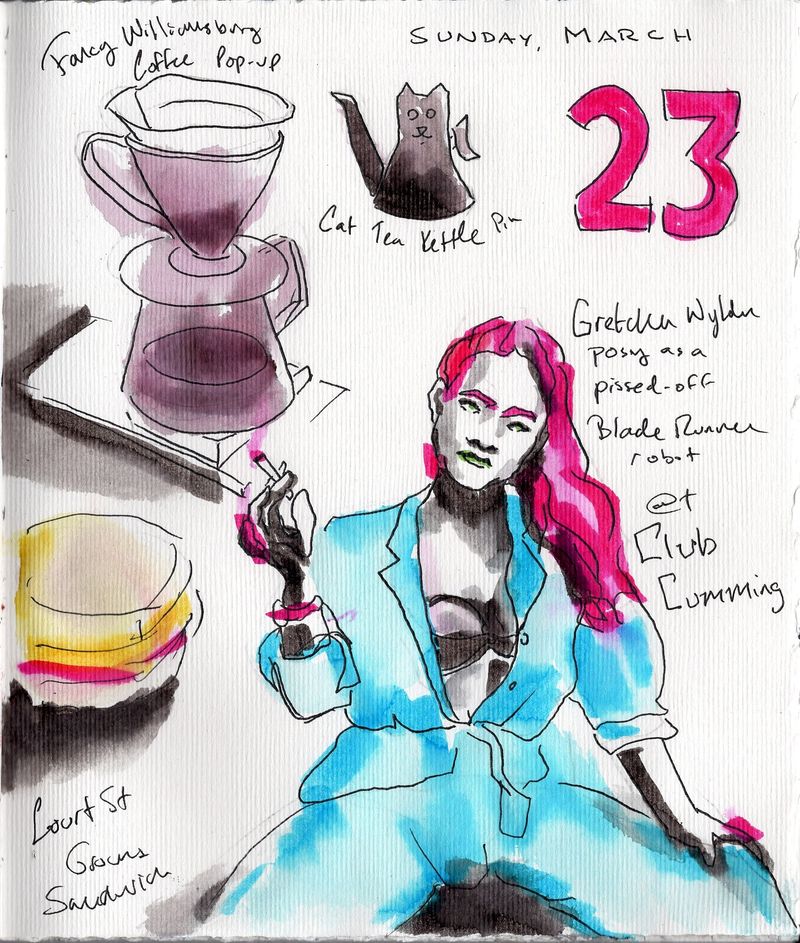 Fancy Williamsburg
Coffee Pop-up
SUNDAY, MARCH
23
Cat Tea Kettle Pin
Gretchen
posing as a
pissed-off
Blade Runner
robot
@t
Club
Cumming
Court St
Grocers
Sandwich